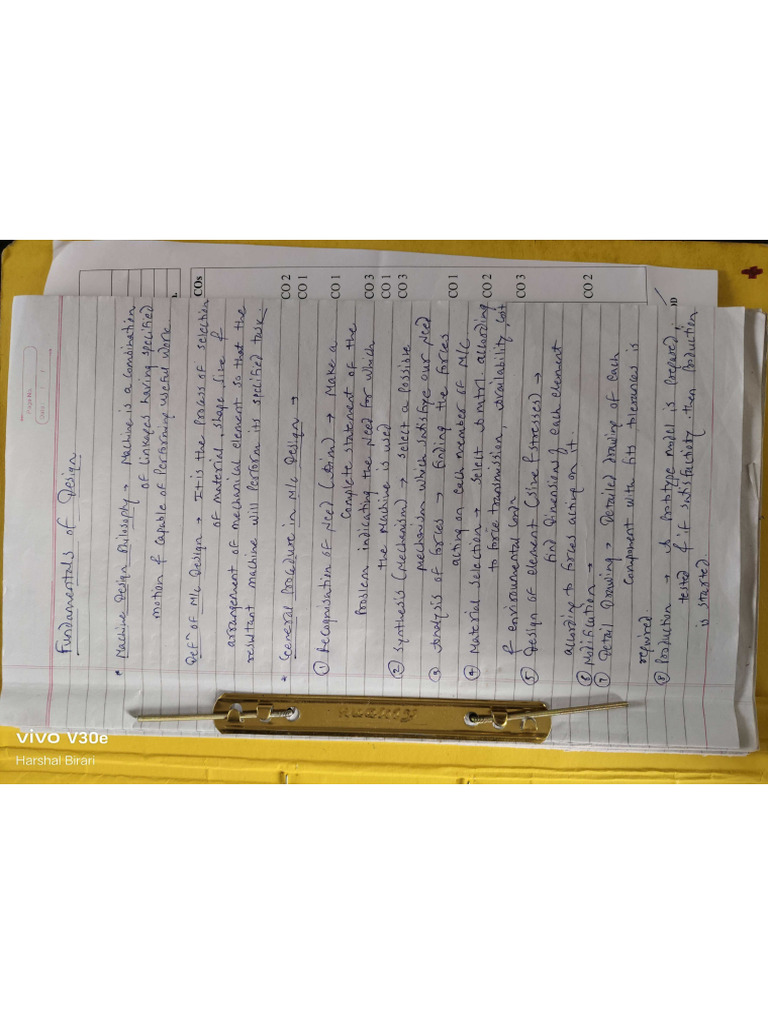 Page No.
Date
Fundamentals of Design
* Machine Design Philosophy → Machine is a combination
of linkages having specified
motion & capable of performing useful work
Defⁿ of M/c Design → It is the process of selection
of material, shape, size &
arrangement of mechanical element so that the
resultant machine will perform its specified task.
* General Procedure in M/c Design →
① Recognisation of Need (Aim) → Make a
complete statement of the
problem indicating the Need for which
the Machine is used
② Synthesis (Mechanism) → select a possible
mechanism which satisfise our Need
③ Analysis of forces → finding the forces
acting on each member of M/c
④ Material selection → select matrl. according
to force transmission, availability, cost
& environmental condn
⑤ Design of element (size & stresses) →
find Dimensions of each element
according to forces acting on it.
⑥ Modification →
⑦ Detail Drawing → Detailed drawing of each
component with fits tolerances is
required.
⑧ Production → prototype model is prepared,
tested & if satisfactory then production
is started.
COs
CO 2
CO 1
CO 1
CO 3
CO 1
CO 3
CO 1
CO 2
CO 3
CO 2
vivo V30e
Harshal Birari